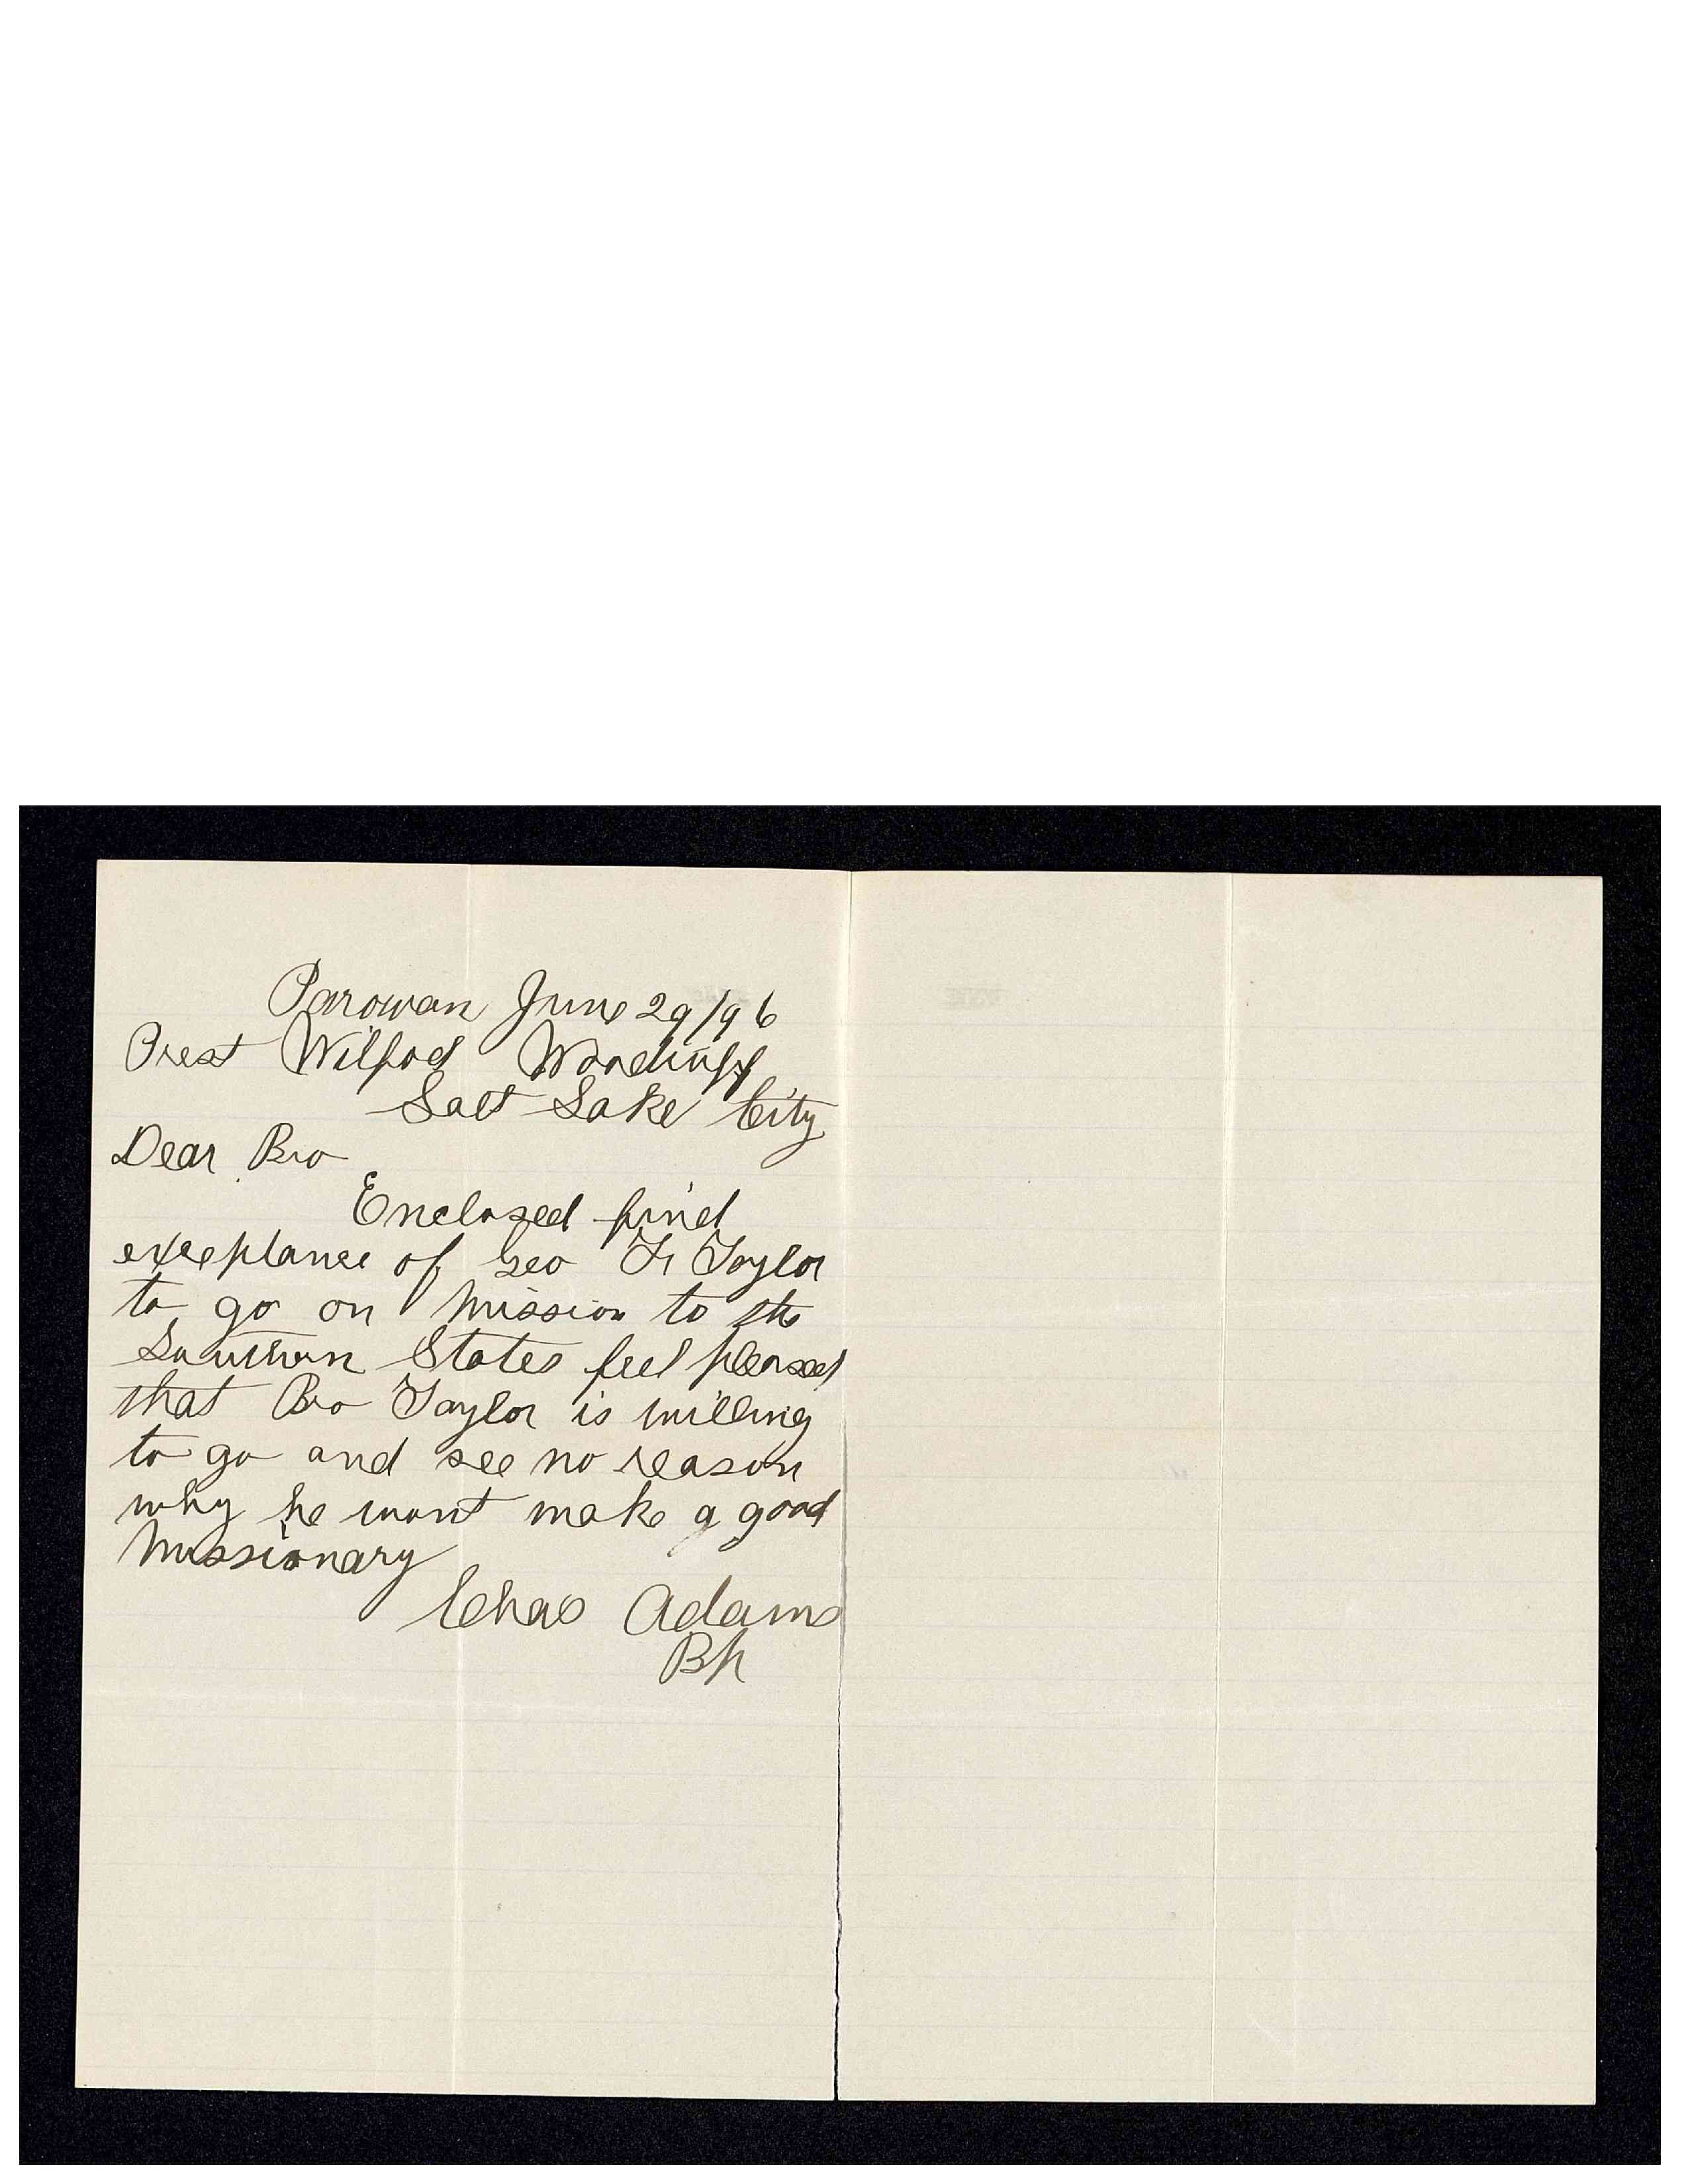 Parowan June 29/96
Prest Wilfod Woodruff
Salt Lake City
Dear Bro
Enclosed find
exceptance of Geo Taylor
to go on Mission to the
Southern States feel pleased
that Bro Taylor is willing
to go and see no reason
why he wont make a good
Missionary
Chas Adams
Bp